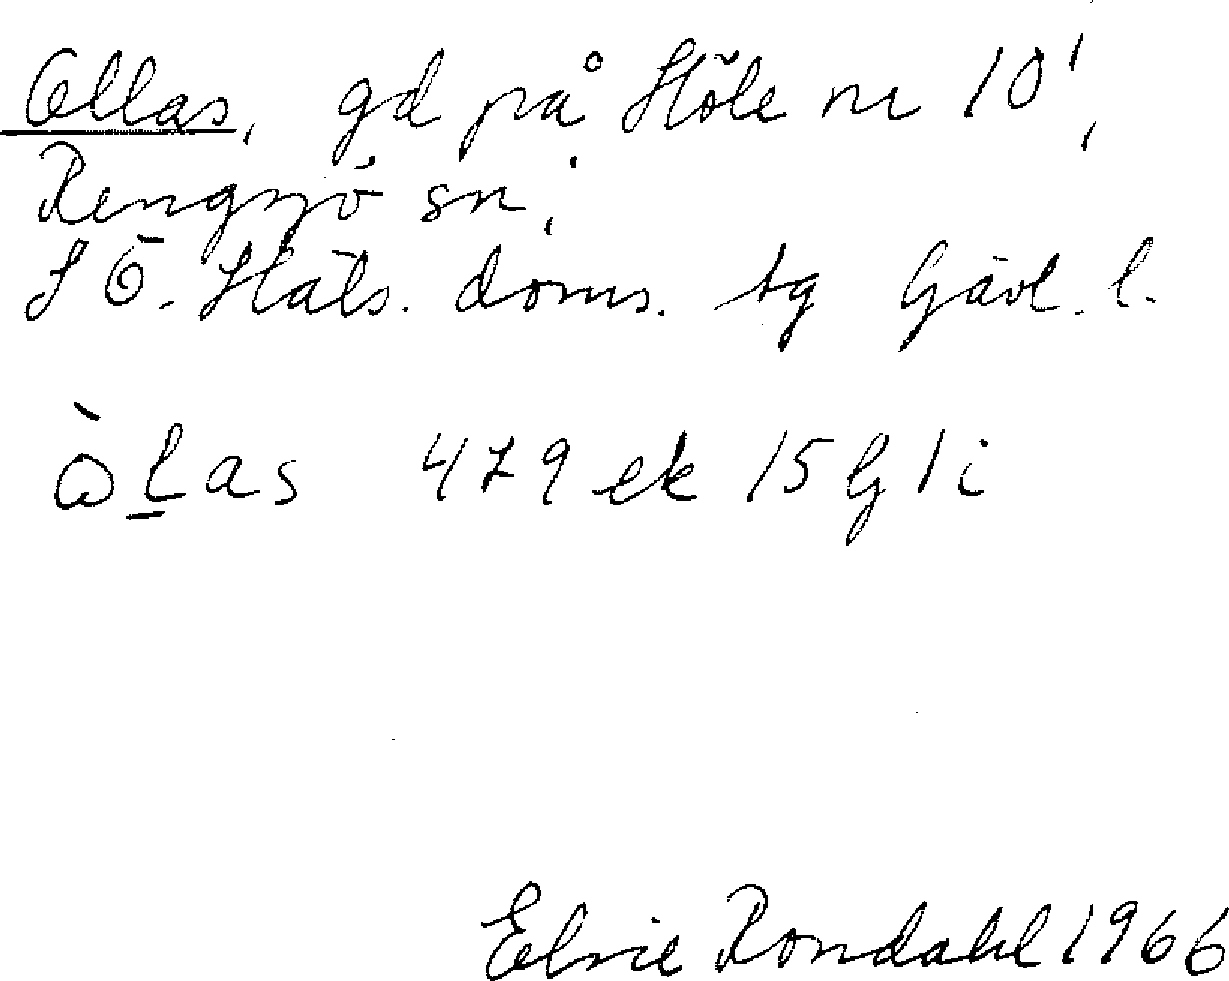 Ollas, gd på Höle nr 10¹,
Rengsjö sn,
S Ö. Häls. doms. tg Gävl. l.
ὼl̲as 479 ek 15G 1i
Elsie Rondahl 1966